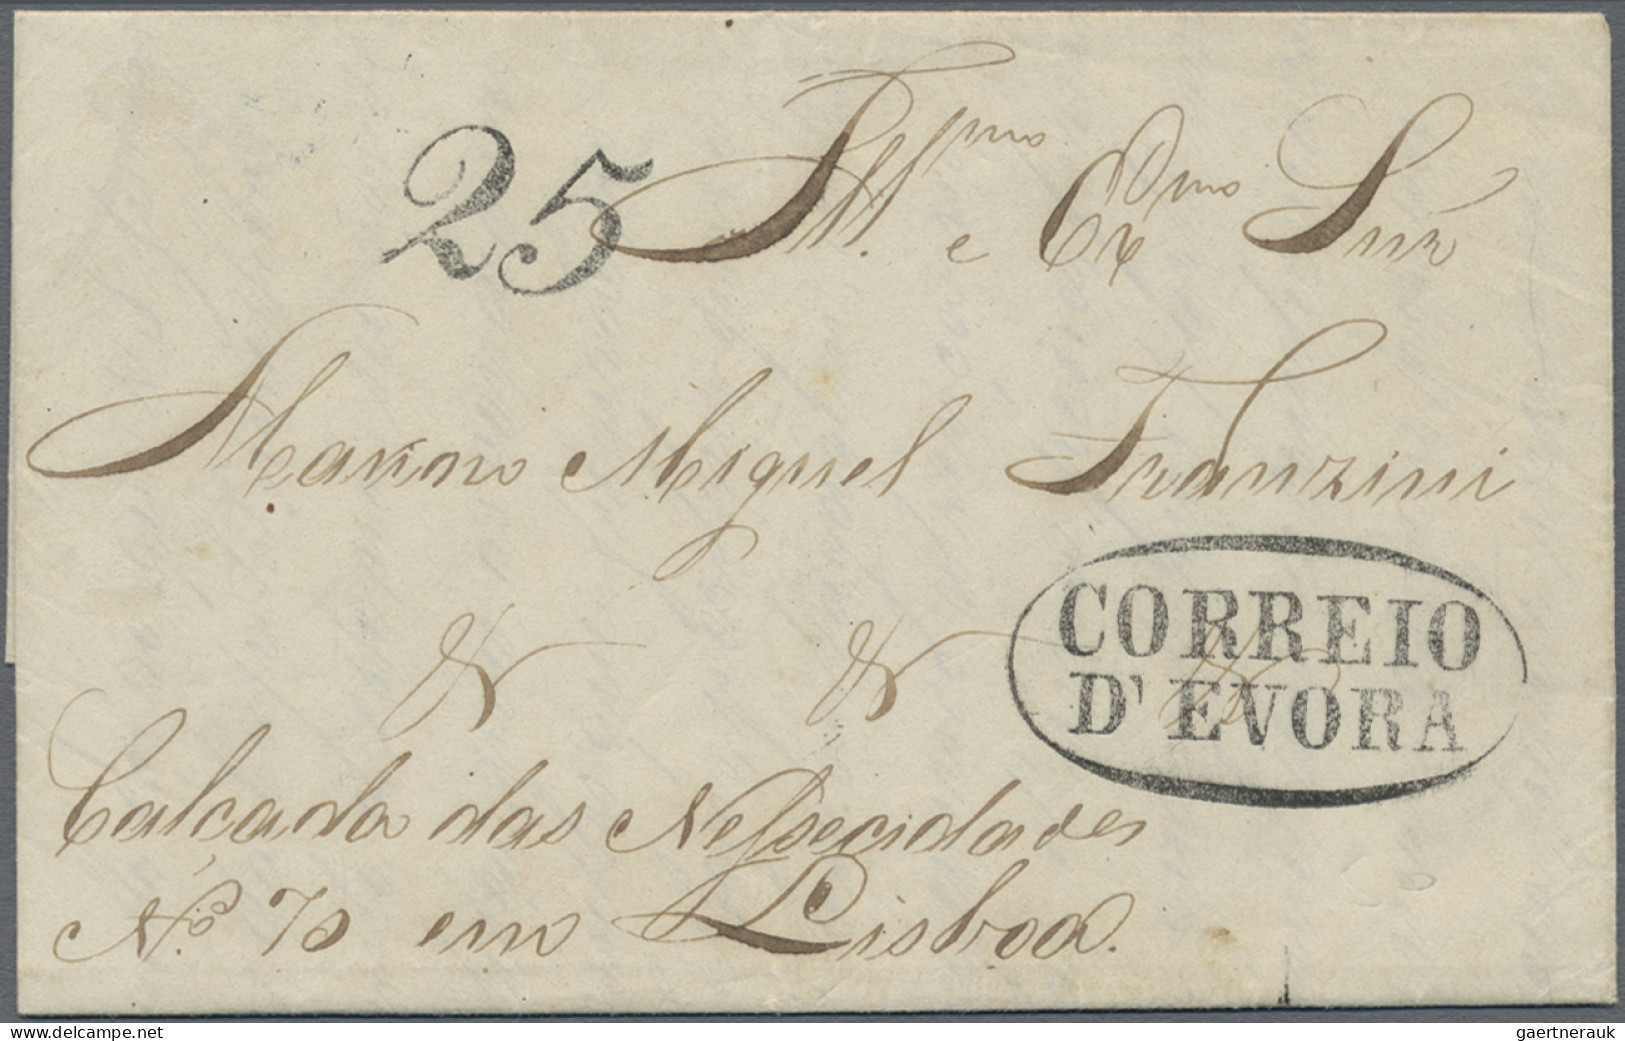 25 Ill.mo e Ex.mo Snr
Marino Miguel Franzini
& & &
CORREIO
D' EVORA
Calçada das Nessecidades
No. 70 em Lisboa.
www.delcampe.net
gaertnerauk